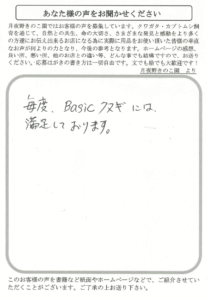 あなた様の声をお聞かせください
月夜野きのこ園ではお客様の声を募集しています。クワガタ・カブトムシ飼
育を通じて、自然との共生、命の大切さ、さまざまな発見と感動をより多く
の方達にお伝え出来るお店になる為に実際に用品をお使い頂いた皆様の率直
なお声が何よりの力となり、今後の参考となります。ホームページの感想、
良い所、悪い所、他のお店との違い等、どんな事でも結構ですので、お送り
ください。応募はがきの書き方は一切自由です。文でも絵でも大歓迎です！
月夜野きのこ園 より
毎度、Basicクヌギには、
満足しております。
このお客様の声を書籍など紙面やホームページなどで、ご紹介させてい
ただくことがございます。ご了承の上お送り下さい。